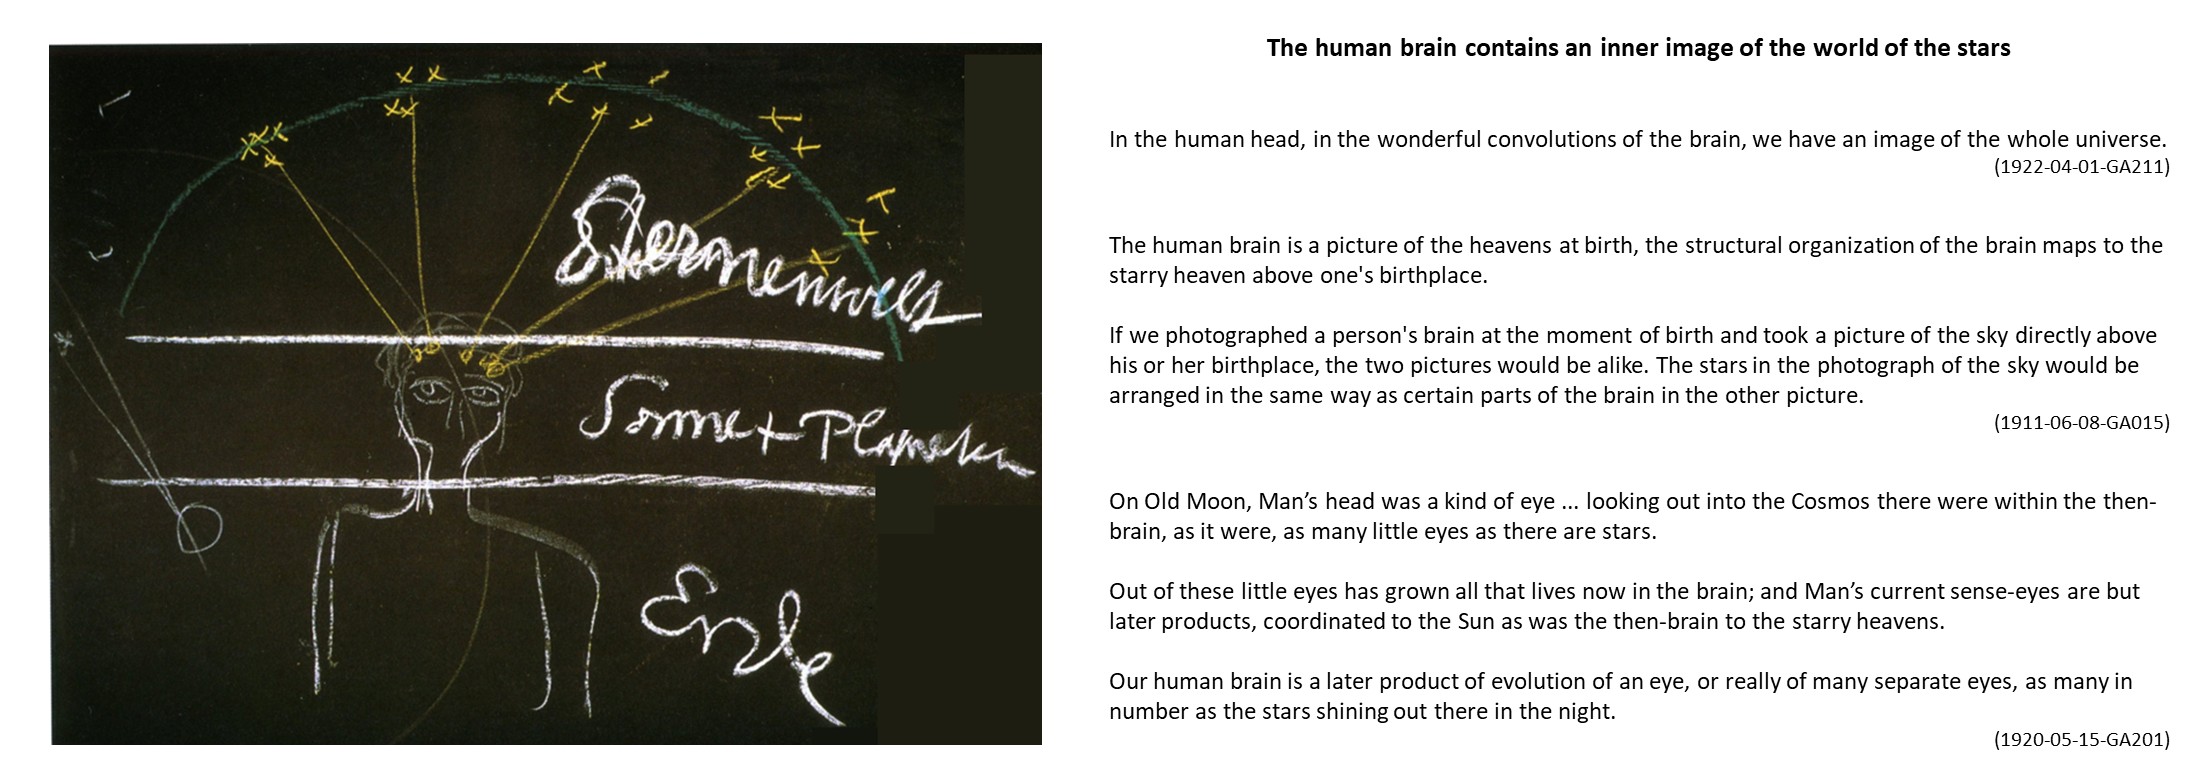 Sternenwelt
Sonne + Planeten
Erde
The human brain contains an inner image of the world of the stars
In the human head, in the wonderful convolutions of the brain, we have an image of the whole universe.
(1922-04-01-GA211)
The human brain is a picture of the heavens at birth, the structural organization of the brain maps to the
starry heaven above one's birthplace.
If we photographed a person's brain at the moment of birth and took a picture of the sky directly above
his or her birthplace, the two pictures would be alike. The stars in the photograph of the sky would be
arranged in the same way as certain parts of the brain in the other picture.
(1911-06-08-GA015)
On Old Moon, Man’s head was a kind of eye ... looking out into the Cosmos there were within the then-
brain, as it were, as many little eyes as there are stars.
Out of these little eyes has grown all that lives now in the brain; and Man’s current sense-eyes are but
later products, coordinated to the Sun as was the then-brain to the starry heavens.
Our human brain is a later product of evolution of an eye, or really of many separate eyes, as many in
number as the stars shining out there in the night.
(1920-05-15-GA201)